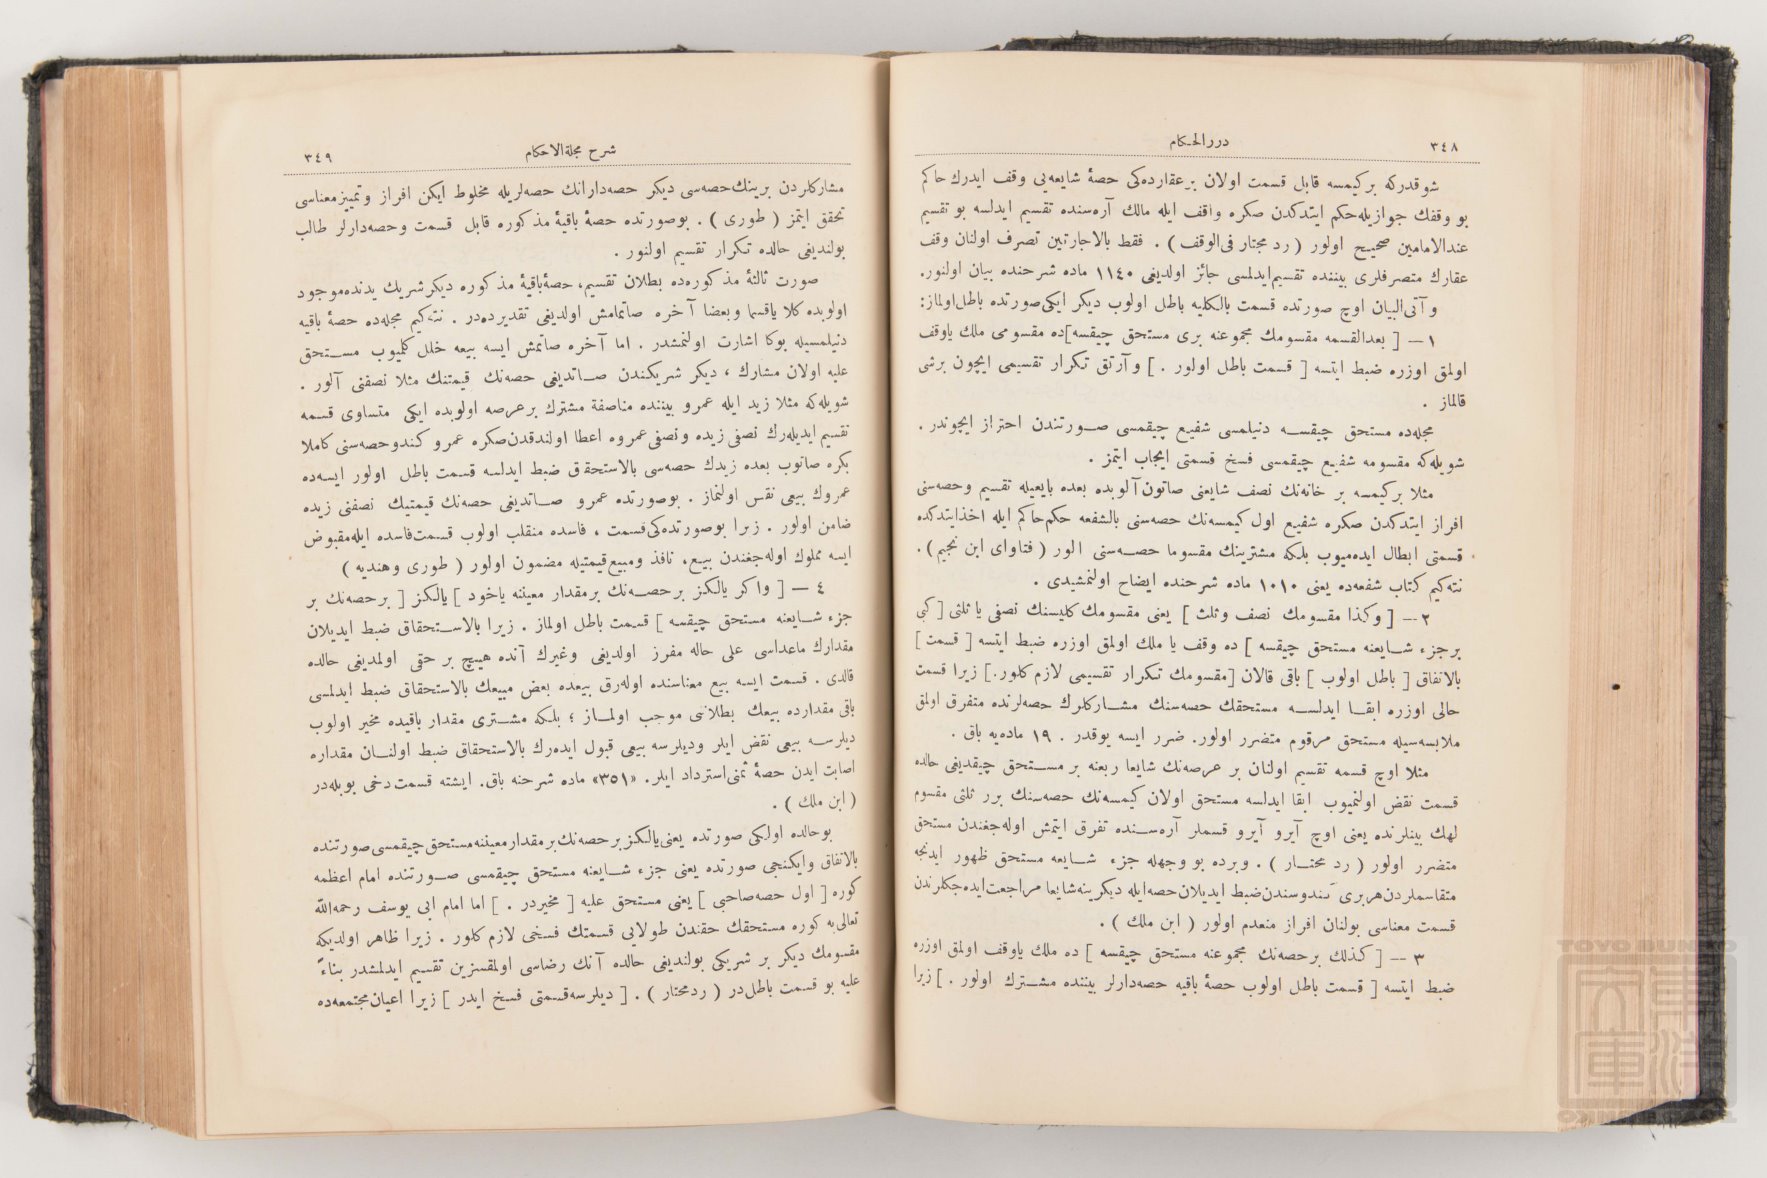 ٣٤٨
دررالحكام
شو قدركه بر كيمسه قابل قسمت اولان بر عقارده‌كى حصهٔ شايعه‌يى وقف ايدرك حاكم
بو وقفك جوازيله حكم ايتدكدن صكره واقف ايله مالك آره‌سنده تقسيم ايدلسه بو تقسيم
عندالامامين صحيح اولور ( رد مختار فى‌الوقف ) . فقط بالاجارتين تصرف اولنان وقف
عقارك متصرفلرى بيننده تقسيم ايدلمسى جائز اولديغى ١١٤٠ ماده شرحنده بيان اولنور.
و آتى‌البيان اوچ صورتده قسمت بالكليه باطل اولوب ديكر ايكى صورتده باطل اولماز:
١ — [ بعدالقسمه مقسومك مجموعنه برى مستحق چيقسه]ده مقسومى ملك ياوقف
اولمق اوزره ضبط ايتسه [ قسمت باطل اولور . ] و آرتق تكرار تقسيمى ايچون برشى
قالماز .
مجله‌ده مستحق چيقسه دنيلمسى شفيع چيقمسى صورتندن احتراز ايچوندر .
شويله‌كه مقسومه شفيع چيقمسى فسخ قسمتى ايجاب ايتمز .
مثلا بر كيمسه بر خانه‌نك نصف شايعنى صاتون آلوبده بعده بايعيله تقسيم و حصه‌سنى
افراز ايتدكدن صكره شفيع اول كيمسه‌نك حصه‌سنى بالشفعه حكم حاكم ايله اخذ ايتدكده
قسمتى ابطال ايده‌ميوب بلكه مشترينك مقسوما حصه‌سنى الور ( فتاواى ابن نجيم ) .
نته‌كيم كتاب شفعه‌ده يعنى ١٠١٠ ماده شرحنده ايضاح اولنمشيدى .
٢ — [ وكذا مقسومك نصف وثلث ] يعنى مقسومك كليسنك نصفى يا ثلثى [ كبى
بر جزء شايعنه مستحق چيقسه ] ده وقف يا ملك اولمق اوزره ضبط ايتسه [ قسمت ]
بالاتفاق [ باطل اولوب ] باقى قالان [مقسومك تكرار تقسيمى لازم كلور.] زيرا قسمت
حالى اوزره ابقا ايدلسه مستحقك حصه‌سنك مشاركلرك حصه‌لرنده متفرق اولمق
ملابسه‌سيله مستحق مرقوم متضرر اولور. ضرر ايسه يوقدر . ١٩ ماده‌يه باق .
مثلا اوچ قسمه تقسيم اولنان بر عرصه‌نك شايعا ربعنه بر مستحق چيقديغى حالده
قسمت نقض اولنميوب ابقا ايدلسه مستحق اولان كيمسه‌نك حصه‌سنك برر ثلثى مقسوم
لهك بينلرنده يعنى اوچ آيرو آيرو قسملر آره‌سنده تفرق ايتمش اوله‌جغندن مستحق
متضرر اولور ( رد مختار ) . و برده بو وجهله جزء شايعه مستحق ظهور ايدنجه
متقاسملردن هربرى كندوسندن ضبط ايديلان حصه ايله ديكرينه شايعا مراجعت ايده‌جكلرندن
قسمت معناسى بولنان افراز منعدم اولور ( ابن ملك ) .
٣ — [ كذلك بر حصه‌نك مجموعنه مستحق چيقسه ] ده ملك ياوقف اولمق اوزره
ضبط ايتسه [ قسمت باطل اولوب حصهٔ باقيه حصه‌دارلر بيننده مشترك اولور . ] زيرا
شرح مجلةالاحكام
٣٤٩
مشاركلردن برينك حصه‌سى ديكر حصه‌دارانك حصه‌لريله مخلوط ايكن افراز وتمييز معناسى
تحقق ايتمز ( طورى ) . بوصورتده حصهٔ باقيهٔ مذكوره قابل قسمت وحصه‌دارلر طالب
بولنديغى حالده تكرار تقسيم اولنور .
صورت ثالثهٔ مذكوره‌ده بطلان تقسيم، حصهٔ باقيهٔ مذكوره ديكر شريك يدنده موجود
اولوبده كلا ياقسما وبعضا آخره صاتمامش اولديغى تقديرده‌در . نته‌كيم مجله‌ده حصهٔ باقيه
دنيلمسيله بوكا اشارت اولنمشدر . اما آخره صاتمش ايسه بيعه خلل كلميوب مستحق
عليه اولان مشارك ، ديكر شريكندن صاتديغى حصه‌نك قيمتنك مثلا نصفنى آلور .
شويله‌كه مثلا زيد ايله عمرو بيننده مناصفة مشترك بر عرصه اولوبده ايكى متساوى قسمه
تقسيم ايديله‌رك نصفى زيده ونصفى عمروه اعطا اولندقدن صكره عمرو كندو حصه‌سنى كاملا
بكره صاتوب بعده زيدك حصه‌سى بالاستحقاق ضبط ايدلسه قسمت باطل اولور ايسه‌ده
عمروك بيعى نقض اولنماز . بوصورتده عمرو صاتديغى حصه‌نك قيمتنك نصفنى زيده
ضامن اولور . زيرا بوصورتده‌كى قسمت ، فاسده منقلب اولوب قسمت فاسده ايله مقبوض
ايسه مملوك اوله‌جغندن بيع، نافذ ومبيع قيمتيله مضمون اولور ( طورى وهنديه )
٤ — [ واكر يالكز بر حصه‌نك بر مقدار معيننه ياخود ] يالكز [ بر حصه‌نك بر
جزء شايعنه مستحق چيقسه ] قسمت باطل اولماز . زيرا بالاستحقاق ضبط ايديلان
مقدارك ماعداسى على حاله مفرز اولديغى وغيرك آنده هيچ بر حقى اولمديغى حالده
قالدى . قسمت ايسه بيع معناسنده اوله‌رق بيعده بعض مبيعك بالاستحقاق ضبط ايدلمسى
باقى مقدارده بيعك بطلاننى موجب اولماز ؛ بلكه مشترى مقدار باقيده مخير اولوب
ديلرسه بيعى نقض ايلر وديلرسه بيعى قبول ايده‌رك بالاستحقاق ضبط اولنان مقداره
اصابت ايدن حصهٔ ثمنى استرداد ايلر. «٣٥١» ماده شرحنه باق. ايشته قسمت دخى بويله‌در
( ابن ملك ) .
بو حالده اولكى صورتده يعنى يالكز بر حصه‌نك بر مقدار معيننه مستحق چيقمسى صورتنده
بالاتفاق وايكنجى صورتده يعنى جزء شايعنه مستحق چيقمسى صورتنده امام اعظمه
كوره [ اول حصه صاحبى ] يعنى مستحق عليه [ مخيردر . ] اما امام ابى يوسف رحمه‌الله
تعالى‌يه كوره مستحقك حقندن طولايى قسمتك فسخى لازم كلور . زيرا ظاهر اولديكه
مقسومك ديكر بر شريكى بولنديغى حالده آنك رضاسى اولمقسزين تقسيم ايدلمشدر بناءً
عليه بو قسمت باطل‌در ( رد مختار ) . [ ديلرسه قسمتى فسخ ايدر ] زيرا اعيان مجتمعه‌ده
TOYO BUNKO
東洋文庫
TOYO BUNKO